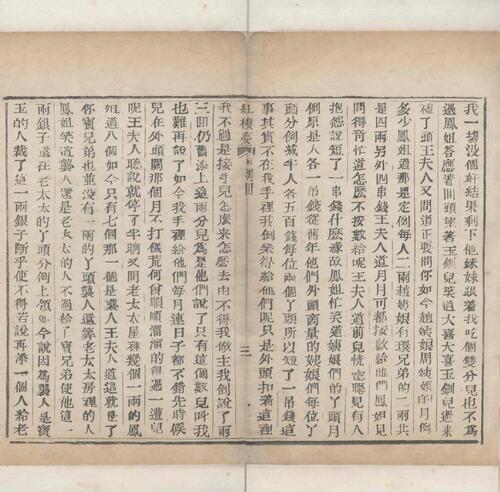 我一塲沒個好結果剩下他妹妹跟着我吃個雙分兒也不爲
過鳳姐答應着回頭望着玉釧兒笑道大喜大喜玉釧兒過來
磕了頭王夫人又問道正要問你如今趙姨娘周姨娘的月例
多少鳳姐道那是定例每人二兩趙姨娘有環兄弟的二兩共
是四兩另外四串錢王夫人道月月可都按數給他們鳳姐兒
問得奇忙道怎麽不按數給呢王夫人道前兒恍惚聽見有人
抱怨說短了一串錢什麽緣故鳳姐忙笑道姨娘們的丫頭月
例原是人各一吊錢從舊年他們外頭商量的姨娘們每位丫
頭分例減半人各五百錢每位兩個丫頭所以短了一吊錢這
事其實不在我手裡我倒樂得給他們呢只是外頭扣着這裡
紅樓夢 三
我不過是接手兒怎麽來怎麽去由不得我做主我倒說了兩
三囬仍舊添上這兩分兒爲是他們說了只有這個數兒呌我
也難再說了如今我手裡給他們每月連日子都不錯先時候
兒在外頭關那個月不打饑荒何曾順順溜溜的得過一遭兒
呢王夫人聽說就停了半晌又問老太太屋裡幾個一兩的鳳
姐道八個如今只有七個那一個是襲人王夫人道這就是了
你寶兄弟也並沒有一兩的丫頭襲人還算老太太房裡的人
鳳姐笑道襲人還是老太太的人不過給了寶兄弟使他這一
兩銀子還在老太太的丫頭分例上領如今說因爲襲人是寶
玉的人裁了這一兩銀子斷乎使不得若說再添一個人給老